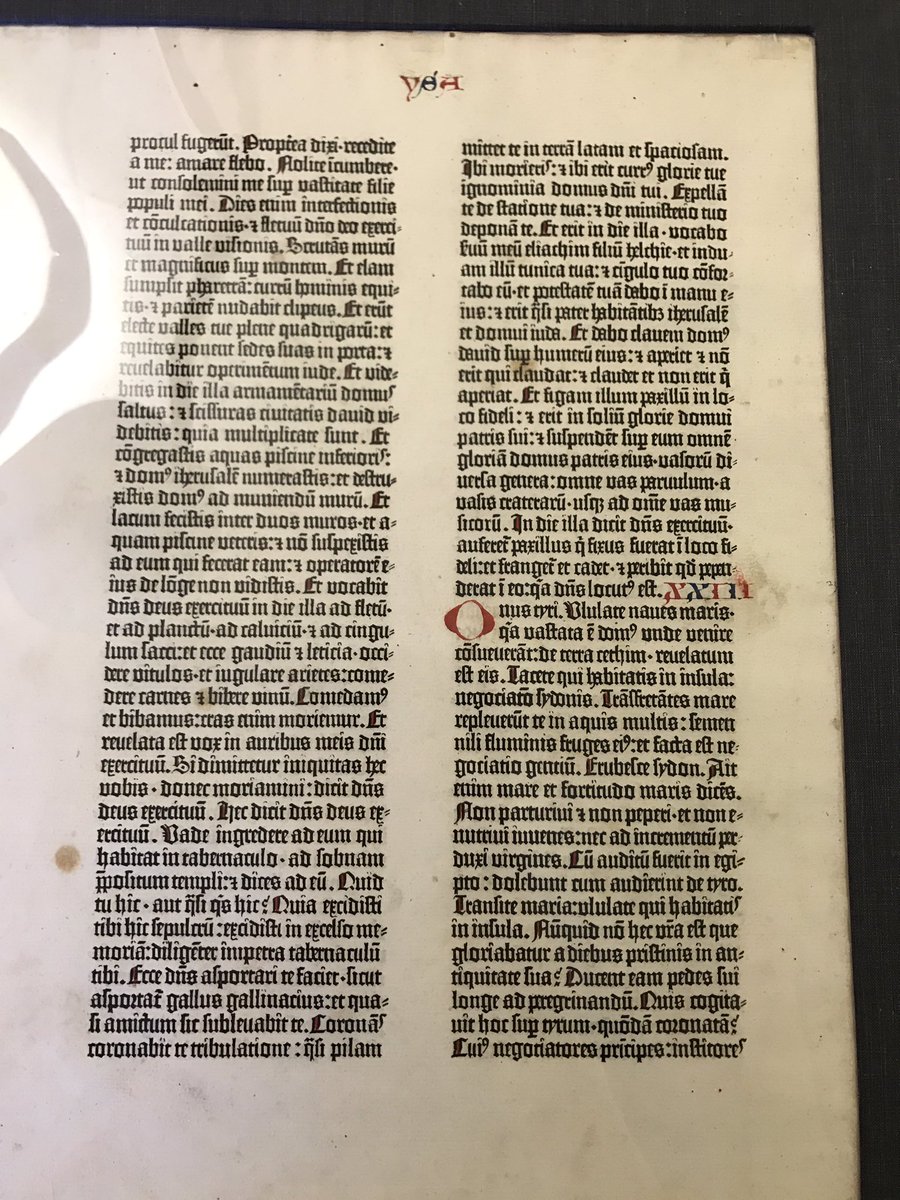 ysa
procul fugerūt. Propt̄ea dixi · recedite
a me: amare flebo. Nolite īcumbere ·
ut consolemini me sup̱ vastitate filie
populi mei. Dies enim interfectionis
et cōculcationis · ⁊ fletuū dn̄o deo exerci⸗
tuū in valle visionis. Scrutās murū
et magnificus sup̱ montem. Et elam
sumpsit pharetrā: currū hominis equi⸗
tis · ⁊ parietē nudabit clipeus. Et erūt
electe valles tue plene quadrigarū: et
equites ponent sedes suas in porta: ⁊
reuelabitur operimētum iude. Et vide⸗
bitis in die illa armamētariū domus
saltus: ⁊ scissuras ciuitatis dauid vi⸗
debitis: quia multiplicate sunt. Et
cōgregastis aquas piscine inferioris:
⁊ domꝰ iherusalē numerastis: et destru⸗
xistis domꝰ ad muniendū murū. Et
lacum fecistis inter duos muros · et a⸗
quam piscine veteris: ⁊ nō suspexistis
ad eum qui fecerat eam: ⁊ operatorē e⸗
ius de lōge non vidistis. Et vocabit
dn̄s deus exercituū in die illa ad fletū ·
et ad planctū · ad caluiciū · ⁊ ad cingu⸗
lum sacci: et ecce gaudiū ⁊ leticia · occi⸗
dere vitulos · et iugulare arietes: come⸗
dere carnes ⁊ bibere vinū. Comedamꝰ
et bibamus: cras enim moriemur. Et
reuelata est vox in auribus meis dn̄i
exercituū. Si dimittetur iniquitas hec
vobis · donec moriamini: dicit dn̄s
deus exercituū. Hec dicit dn̄s deus ex⸗
ercituū. Vade ingredere ad eum qui
habitat in tabernaculo · ad sobnam
p̄positum templi: ⁊ dices ad eū. Quid
tu hic · aut q̄si q̄s hic? Quia excidisti
tibi hic sepulcrū: excidisti in excelso me⸗
moriā: diligēter in petra tabernaculū
tibi. Ecce dn̄s asportari te faciet · sicut
asportat̄ gallus gallinacius: et qua⸗
si amictum sic subleuabit te. Coronās
coronabit te tribulatione: q̄si pilam
mittet te in terrā latam et spaciosam.
Ibi morieris: ⁊ ibi erit currꝰ glorie tue
ignominia domus dn̄i tui. Expellā
te de statione tua: ⁊ de ministerio tuo
deponā te. Et erit in die illa · vocabo
suū meū eliachim filiū helchie · et indu⸗
am illū tunica tua: ⁊ cīgulo tuo cōfor⸗
tabo eū · et potestatē tuā dabo ī manu e⸗
ius: ⁊ erit q̄si pater habitātibꝫ iherusalē
et domui iuda. Et dabo clauem domꝰ
dauid sup̱ humerū eius: ⁊ aperiet ⁊ nō
erit qui claudat: ⁊ claudet et non erit q̄
aperiat. Et figam illum paxillū in lo⸗
co fideli: ⁊ erit in soliū glorie domui
patris sui: ⁊ suspendēt sup̱ eum omnē
gloriā domus patris eius · vasorū di⸗
uersa genera: omne vas paruulum · a
vasis craterarū · usqꝫ ad om̄e vas mu⸗
sicorū. In die illa dicit dn̄s exercituū ·
auferet̄ paxillus q̄ fixus fuerat ī loco fi⸗
deli: et franget̄ et cadet · ⁊ peribit qd̄ pepen⸗
derat ī eo: q̄a dn̄s locutꝰ est. XXIII
Onus tyri. Vlulate naues maris ·
q̄a vastata ē domꝰ vnde venire
cōsueuerāt: de terra cethim · reuelatum
est eis. Tacete qui habitatis in insula:
negociatō sydonis. Trāsfretātes mare
repleuerūt te in aquis multis: semen
nili fluminis fruges eiꝰ: et facta est ne⸗
gociatio gentiū. Erubesce sydon. Ait
enim mare et fortitudo maris dicēs.
Non parturiui ⁊ non peperi · et non e⸗
nutriui iuuenes: nec ad incrementū per⸗
duxi virgines. Cū auditū fuerit in egi⸗
pto: dolebunt cum audierint de tyro.
Transite maria: vlulate qui habitatis
in insula. Nūquid nō hec vr̄a est que
gloriabatur a diebus pristinis in an⸗
tiquitate sua? Ducent eam pedes sui
longe ad peregrinandū. Quis cogita⸗
uit hoc sup̱ tyrum · quōdā coronatā?
Cuiꝰ negociatores prīcipes: institores